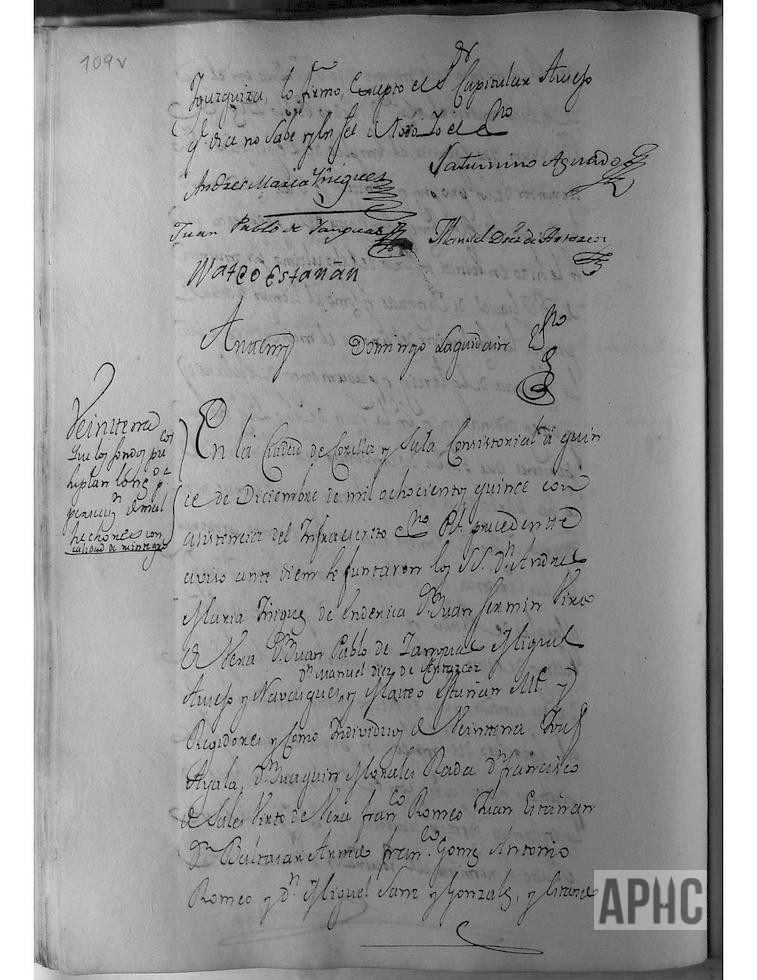 109v
Yurquiza, lo firmo, excepto el Sr Capitular Arnejo
q.e dice no sabe y en fee de todo Yo el Esno
Saturnino Aguado
Andres Maria Yñiguez
Juan Pablo de Zarquas Manuel Diez de Antazcoz
Mateo Estañan
Ante mi Domingo Laguidain Esno
Veintena
Que los fondos pu cos
hechores con
calidad de reintegro
En la Ciudad de Corella y Sala Consistorial á quin
ce de Diciembre de mil ochocientos quince con
asistencia del Infraescrito Esno Rl. precedente
aviso ante diem se juntaron los SS. Dn. Andres
Maria Iñiguez de Enderica Dn. Juan Fermin Virto
de Vera Dn. Juan Pablo de Zarquas Miguel
Dn. Manuel Diez de Antazcoz
y Navasques, y Mateo Estañan Alc. y
Regidores y como Individuos de Veintena
Ayala, Dn. Joaquin Morales Rada Dn. Francisco
de Sales Virto de Vera Franco Romeo Juan Estañan
Dn. Baltasar Franco Gomez Antonio
Romeo y Dn. Miguel Sanz y Gonzalez, y
APHC